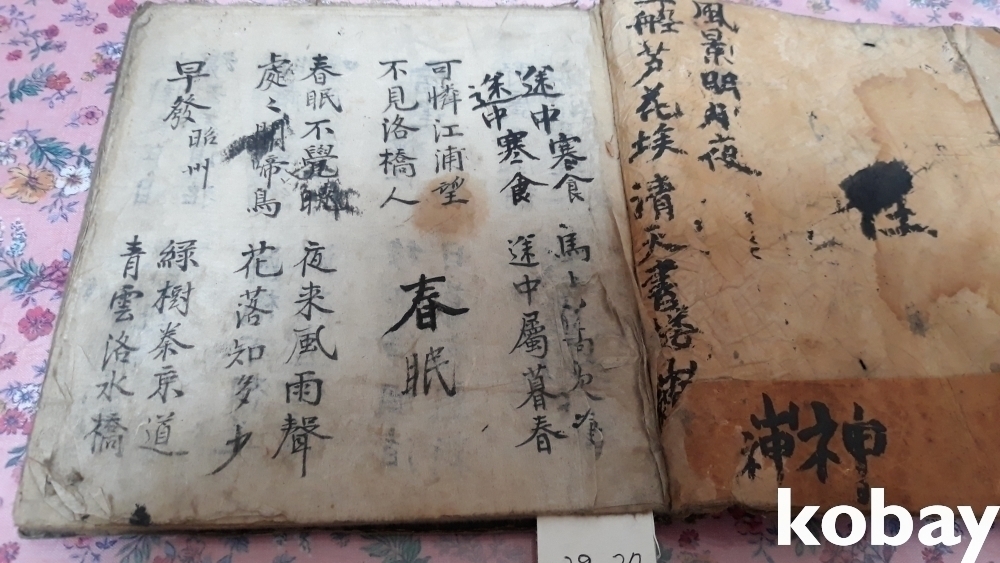 風景眀月夜
船芦花埃 清天書
神
途中寒食 馬上
途中寒食 途中屬暮春
可憐江浦望
不見洛橋人
春眠
春眠不覺 夜来風雨聲
處々聞啼鳥 花落知多少
早發昭州
綠樹秦京道
青雲洛水橋
29-20
kobay